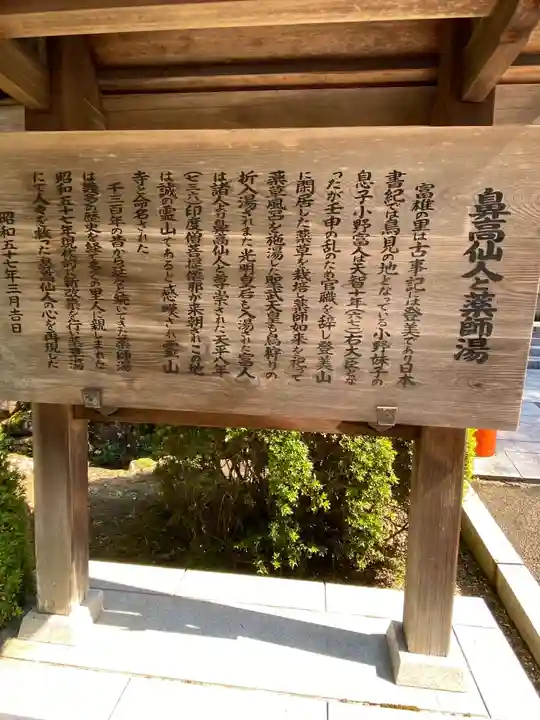 鼻高仙人と薬師湯
富雄の里は古事記には登美であり日本
書紀では鳥見の地となっている小野妹子の
息子小野富人は天智十年(六七二)右大臣な
ったが壬申の乱のため官職を辞し登美山
に閑居した薬草を栽培し薬師如来を祀って
薬草風呂を施湯した聖武天皇も鳥狩りの
折入湯されまた光明皇后も入湯された富人
は諸人より鼻高仙人と尊崇された天平八年
(七三六)印度僧菩提僊那が来朝されこの地
は誠の霊山であると感嘆され霊山
寺と命名された
千三百年の昔から延々続いてきた薬師湯
は幾多の歴史を経て多くの里人に親しまれた
昭和五十七年現代的に新改築を行い薬草湯
にて人々を救った鼻高仙人の心を再現した
昭和五十七年三月吉日